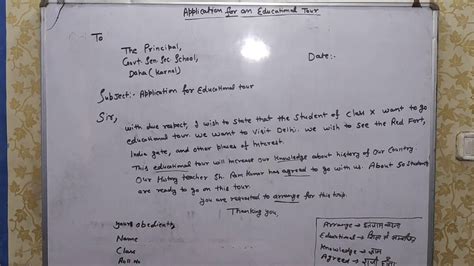 Application for an Educational Tour
To
The Principal,
Govt. Sen. Sec School,
Daha (Karnal)
Date:-
Subject:- Application for Educational tour
Sir,
with due respect, I wish to State that the Student of Class X want to go
educational tour. we want to Visit Delhi. we wish to See the Red Fort,
India gate, and other places of interest.
This educational tour will increase our Knowledge about history of our Country.
Our History teacher Sh. Ram Kumar has agreed to go with us. About 50 Students
are ready to go on this tour.
you are requested to arrange for this trip.
Thanking you,
yours obediently
Name
Class
Roll No
Arrange → इन्तजाम करना
Educational → शिक्षा से सम्बन्धित
Knowledge → ज्ञान
Agreed → राजी होना